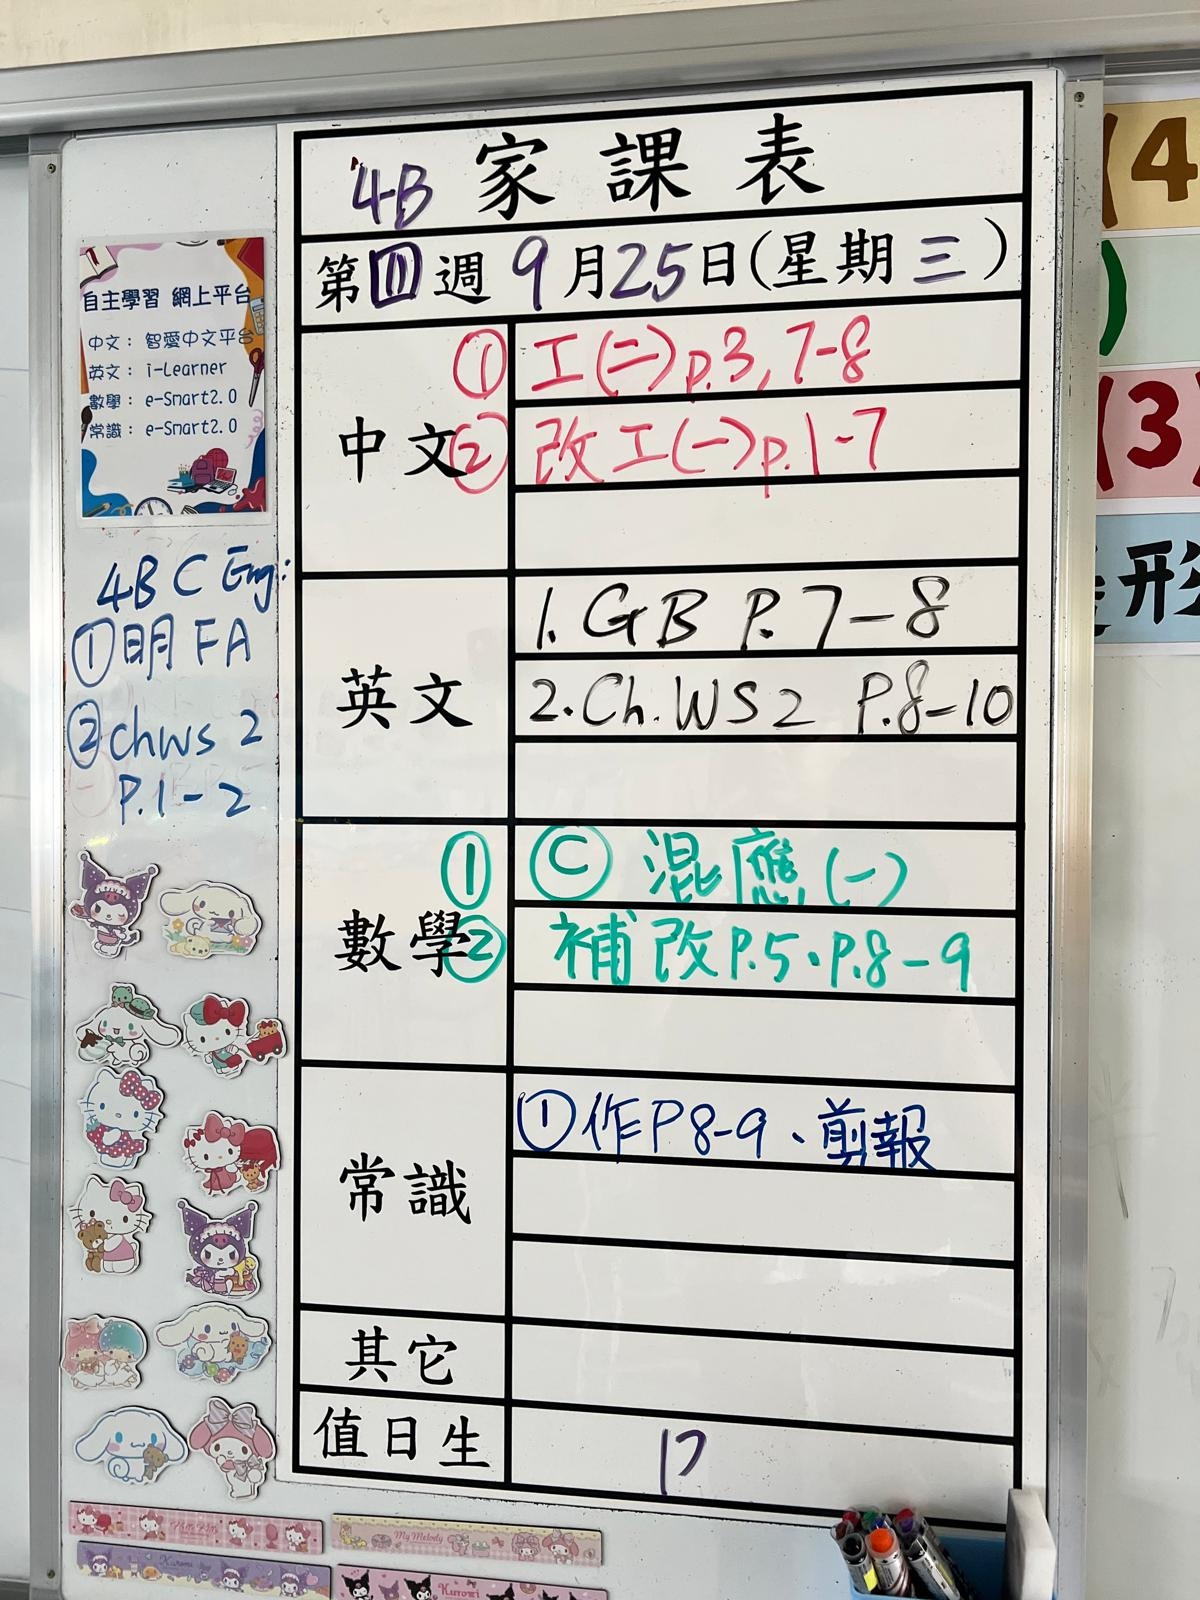 4B 家課表
第四週 9月25日(星期三)
中文
① 工(二)p.3, 7-8
② 改工(一)p.1-7
英文
1. GB P. 7-8
2. Ch. WS2 P.8-10
數學
① Ⓒ 混應(一)
② 補改P.5、P.8-9
常識
①作P8-9、剪報
其它
值日生
17
自主學習 網上平台
中文： 智愛中文平台
英文： i-Learner
數學： e-Smart2.0
常識： e-Smart2.0
4B C Eng:
①明 FA
② ChWS 2
P.1-2
(4
)
(3)
形
My Melody
Kuromi
Kuromi